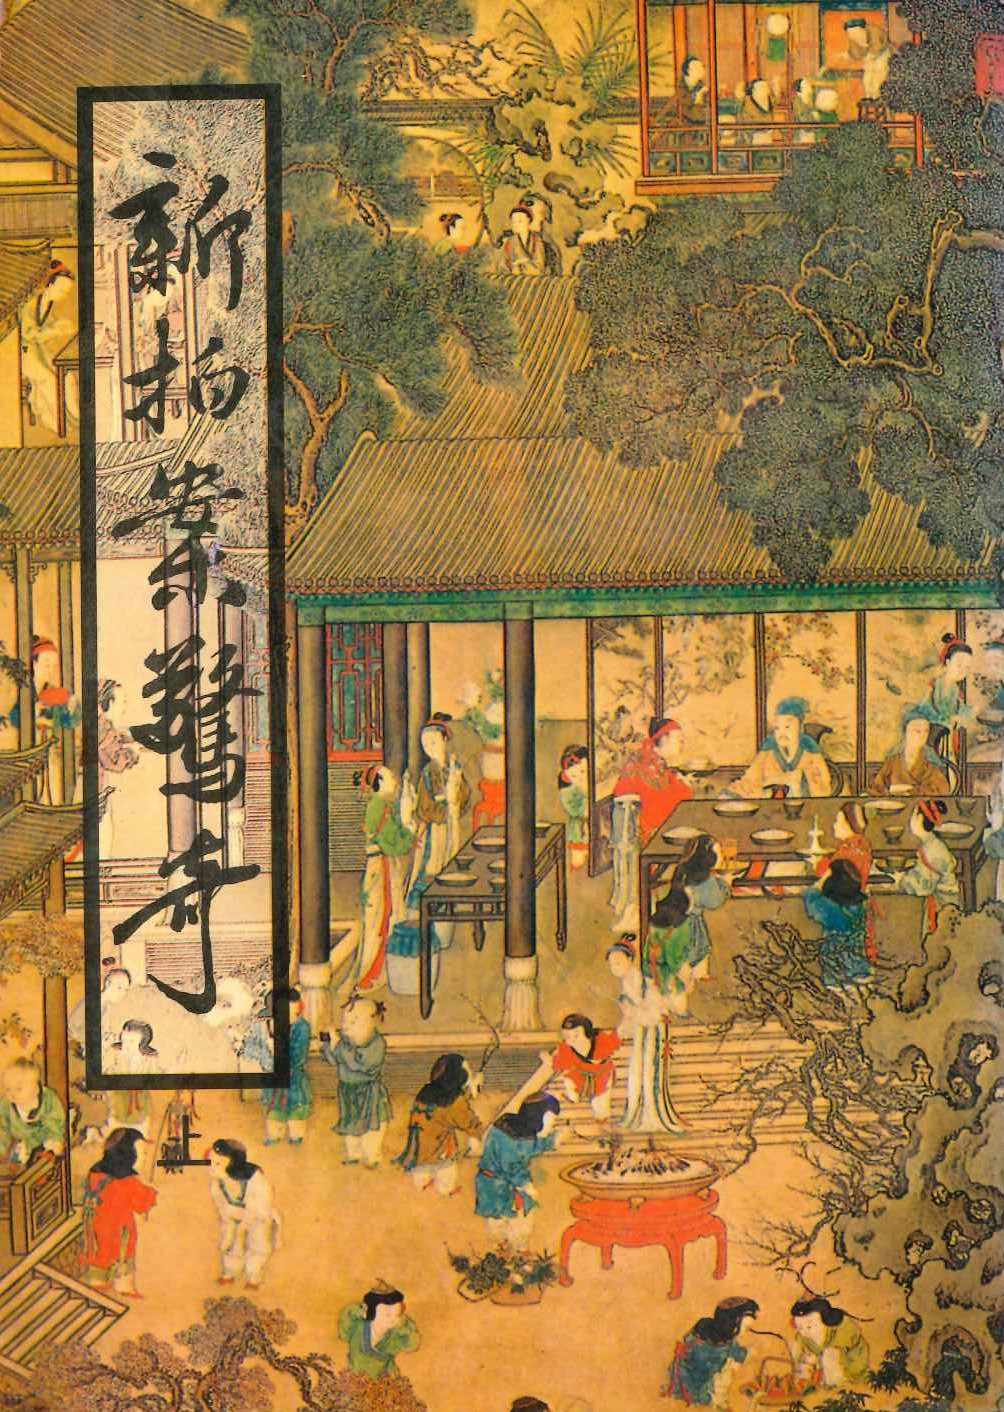 新拍案驚奇
上